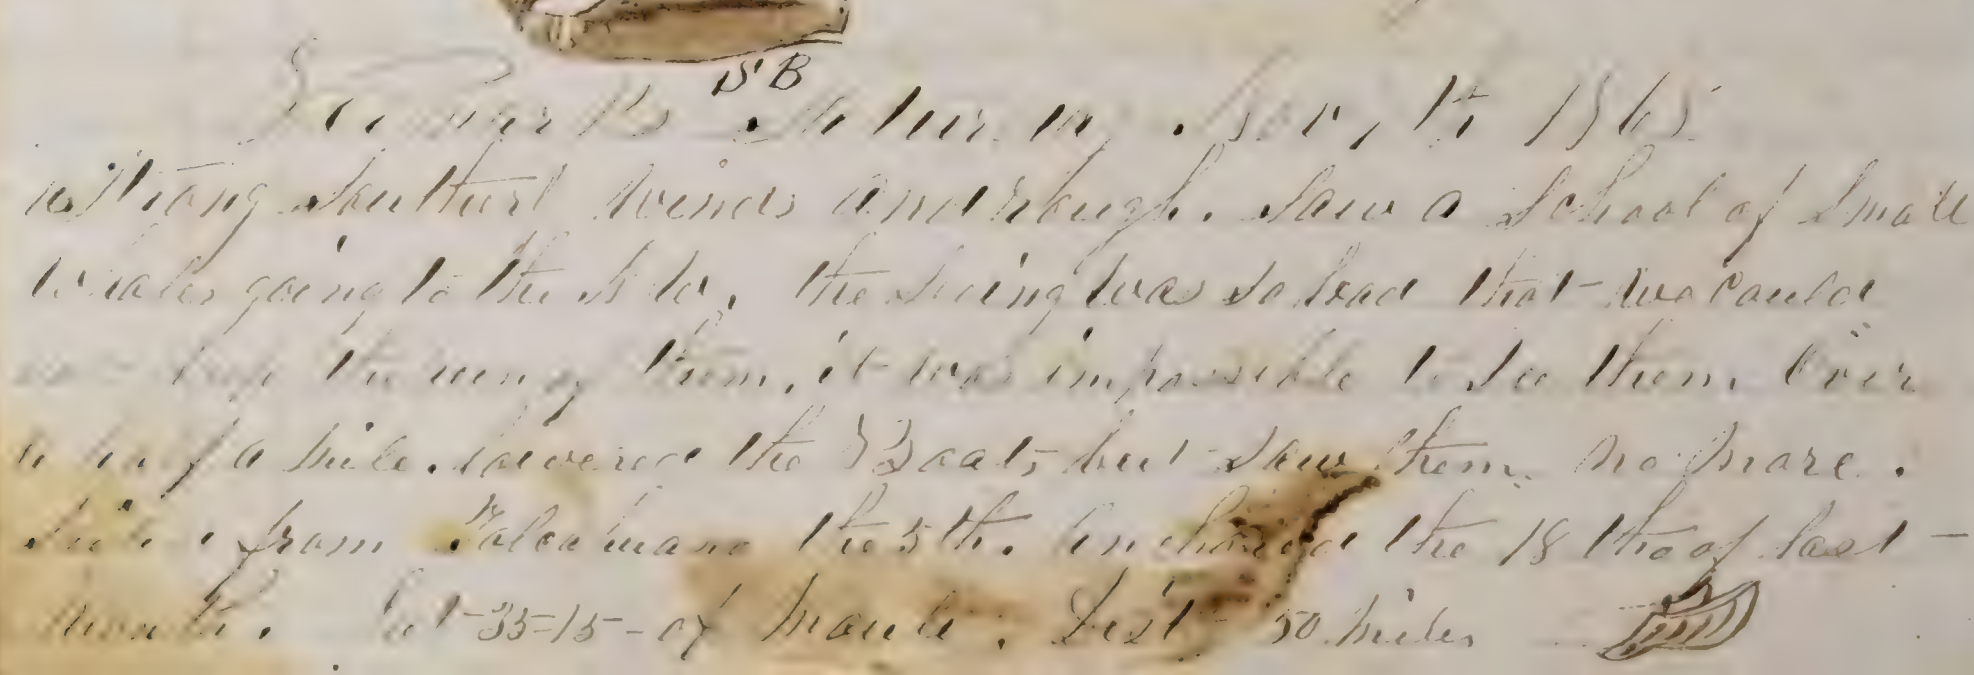 S B
Remarks Saturday Nov, 1865
Strong Southerl winds and rough. Saw a School of Small
Whales going to the the Swing was so bad that we could
not keep the run of them, it was impossible to See them Over
a half a mile. Lowered the Boats but Saw them no more.
Sailed from Talcahuano the 5th. Anchored the 18th of last
month. Lat 35-15- of Maule. Dist 50 miles